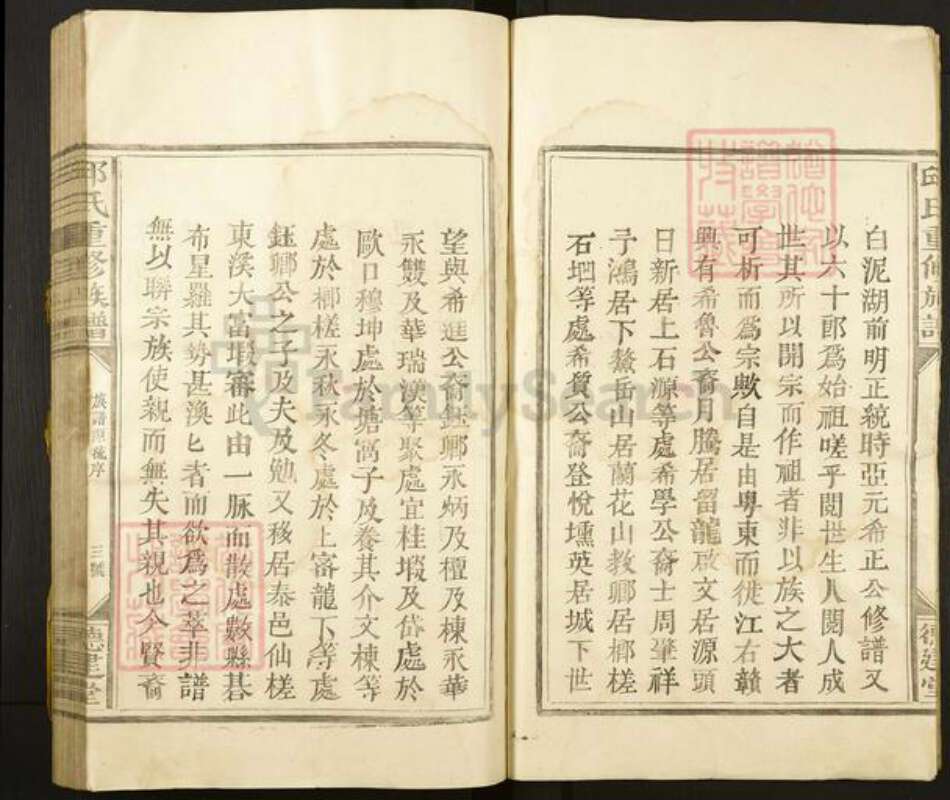 白泥湖前明正統時亞元希正公修譜又
以六十郎爲始祖嗟乎閱世生人閱人成
世其所以開宗而作祖者非以族之大者
可析而爲宗歟自是由粵東而徙江右贛
興有希魯公裔月騰居留龍啟文居源頭
日新居上石源等處希學公裔士周肇祥
子鴻居下鰲岳山居蘭花山教卿居槨槎
石堌等處希賀公裔登悅壎英居城下世
望與希進公裔鈺卿永炳及檀及棟永華
永雙及華瑞漢等聚處宜桂塅及岱處於
歐口穆坤處於塘窩子及養其介文棟等
處於槨槎永秋永冬處於上審龍下等處
鈺卿公之子及夫及勉又移居泰邑仙槎
東溪大富塅審此由一脈而散處數縣碁
布星羅其勢甚渙匕者而欲爲之萃非譜
無以聯宗族使親而無失其親也今賢裔
邱氏重修族譜
族譜源流序
三號
德建堂
FamilySearch